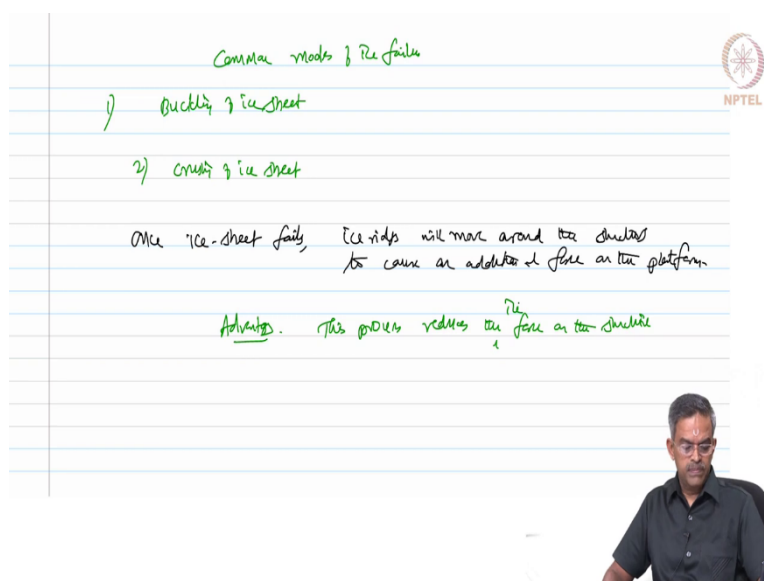 Common modes of Ice failure
NPTEL
1) Buckling of ice sheet
2) Crushing of ice sheet
Once ice-sheet fails, ice ridges will move around the structure
to cause an additional force on the platform.
Advantage. This process reduces the ice force on the structure